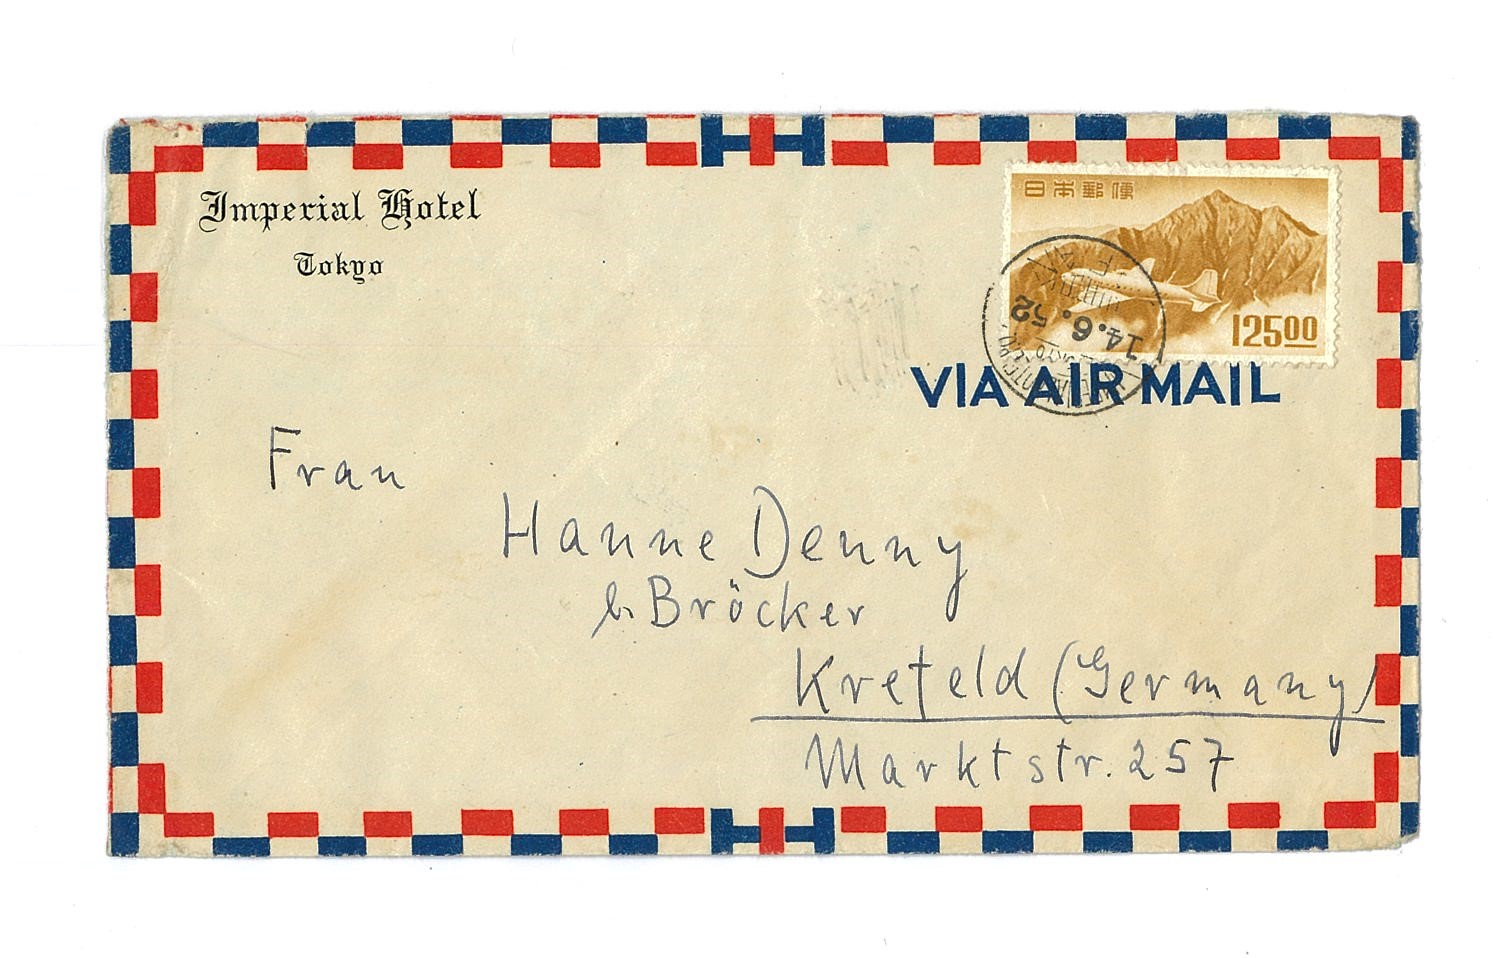 Imperial Hotel
Tokyo
日本郵便
12500
14.6.52
VIA AIR MAIL
Frau
Hanne Denny
b. Bröcker
Krefeld (Germany)
Marktstr. 257